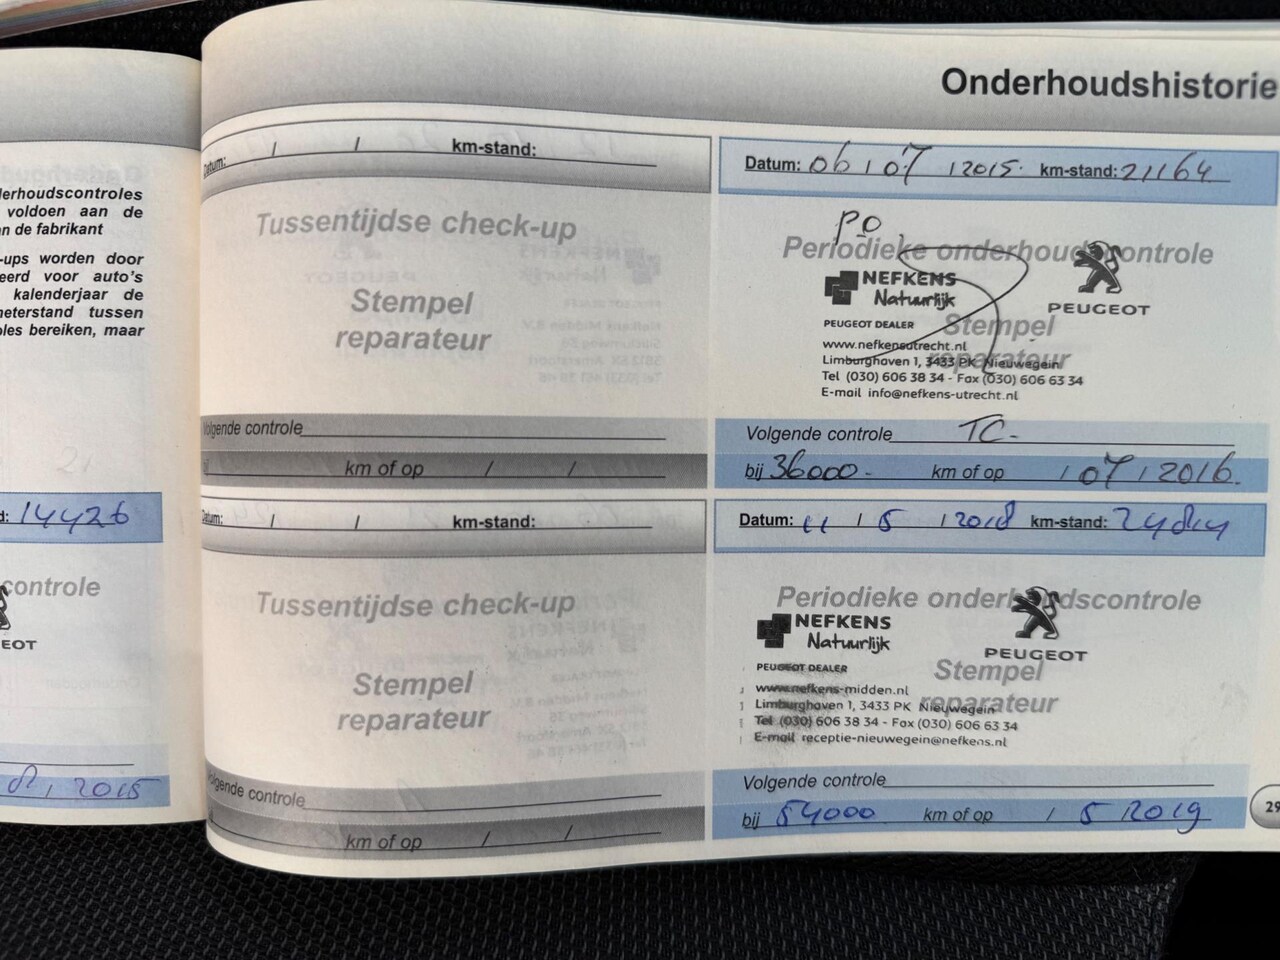 erhoudscontroles
voldoen aan de
n de fabrikant
-ups worden door
eerd voor auto's
kalenderjaar de
neterstand tussen
les bereiken, maar
14426
controle
EOT
2015
Onderhoudshistorie
Datum: / / km-stand:
Tussentijdse check-up
Stempel
reparateur
Volgende controle
km of op / /
Datum: / / km-stand:
Tussentijdse check-up
Stempel
reparateur
Volgende controle
km of op / /
Datum: 06 / 07 / 2015. km-stand: 21164
PO
Periodieke onderhoudscontrole
NEFKENS
Natuurlijk
PEUGEOT
PEUGEOT DEALER
Stempel
reparateur
www.nefkensutrecht.nl
Limburghaven 1, 3433 PK Nieuwegein
Tel (030) 606 38 34 - Fax (030) 606 63 34
E-mail info@nefkens-utrecht.nl
Volgende controle TC-
bij 36000- km of op / 07 / 2016.
Datum: 11 / 5 / 2018 km-stand:
Periodieke onderhoudscontrole
NEFKENS
Natuurlijk
PEUGEOT
PEUGEOT DEALER
Stempel
reparateur
www.nefkens-midden.nl
Limburghaven 1, 3433 PK Nieuwegein
Tel (030) 606 38 34 - Fax (030) 606 63 34
E-mail receptie-nieuwegein@nefkens.nl
Volgende controle
bij 54000 km of op / 5 2019
29